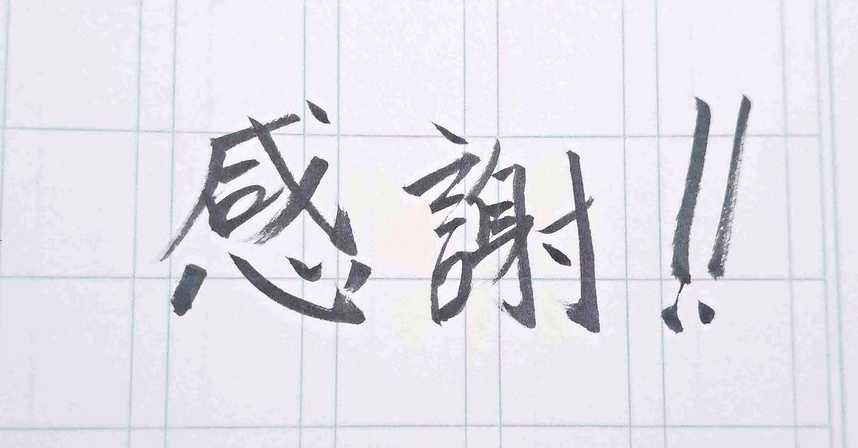 感謝!!